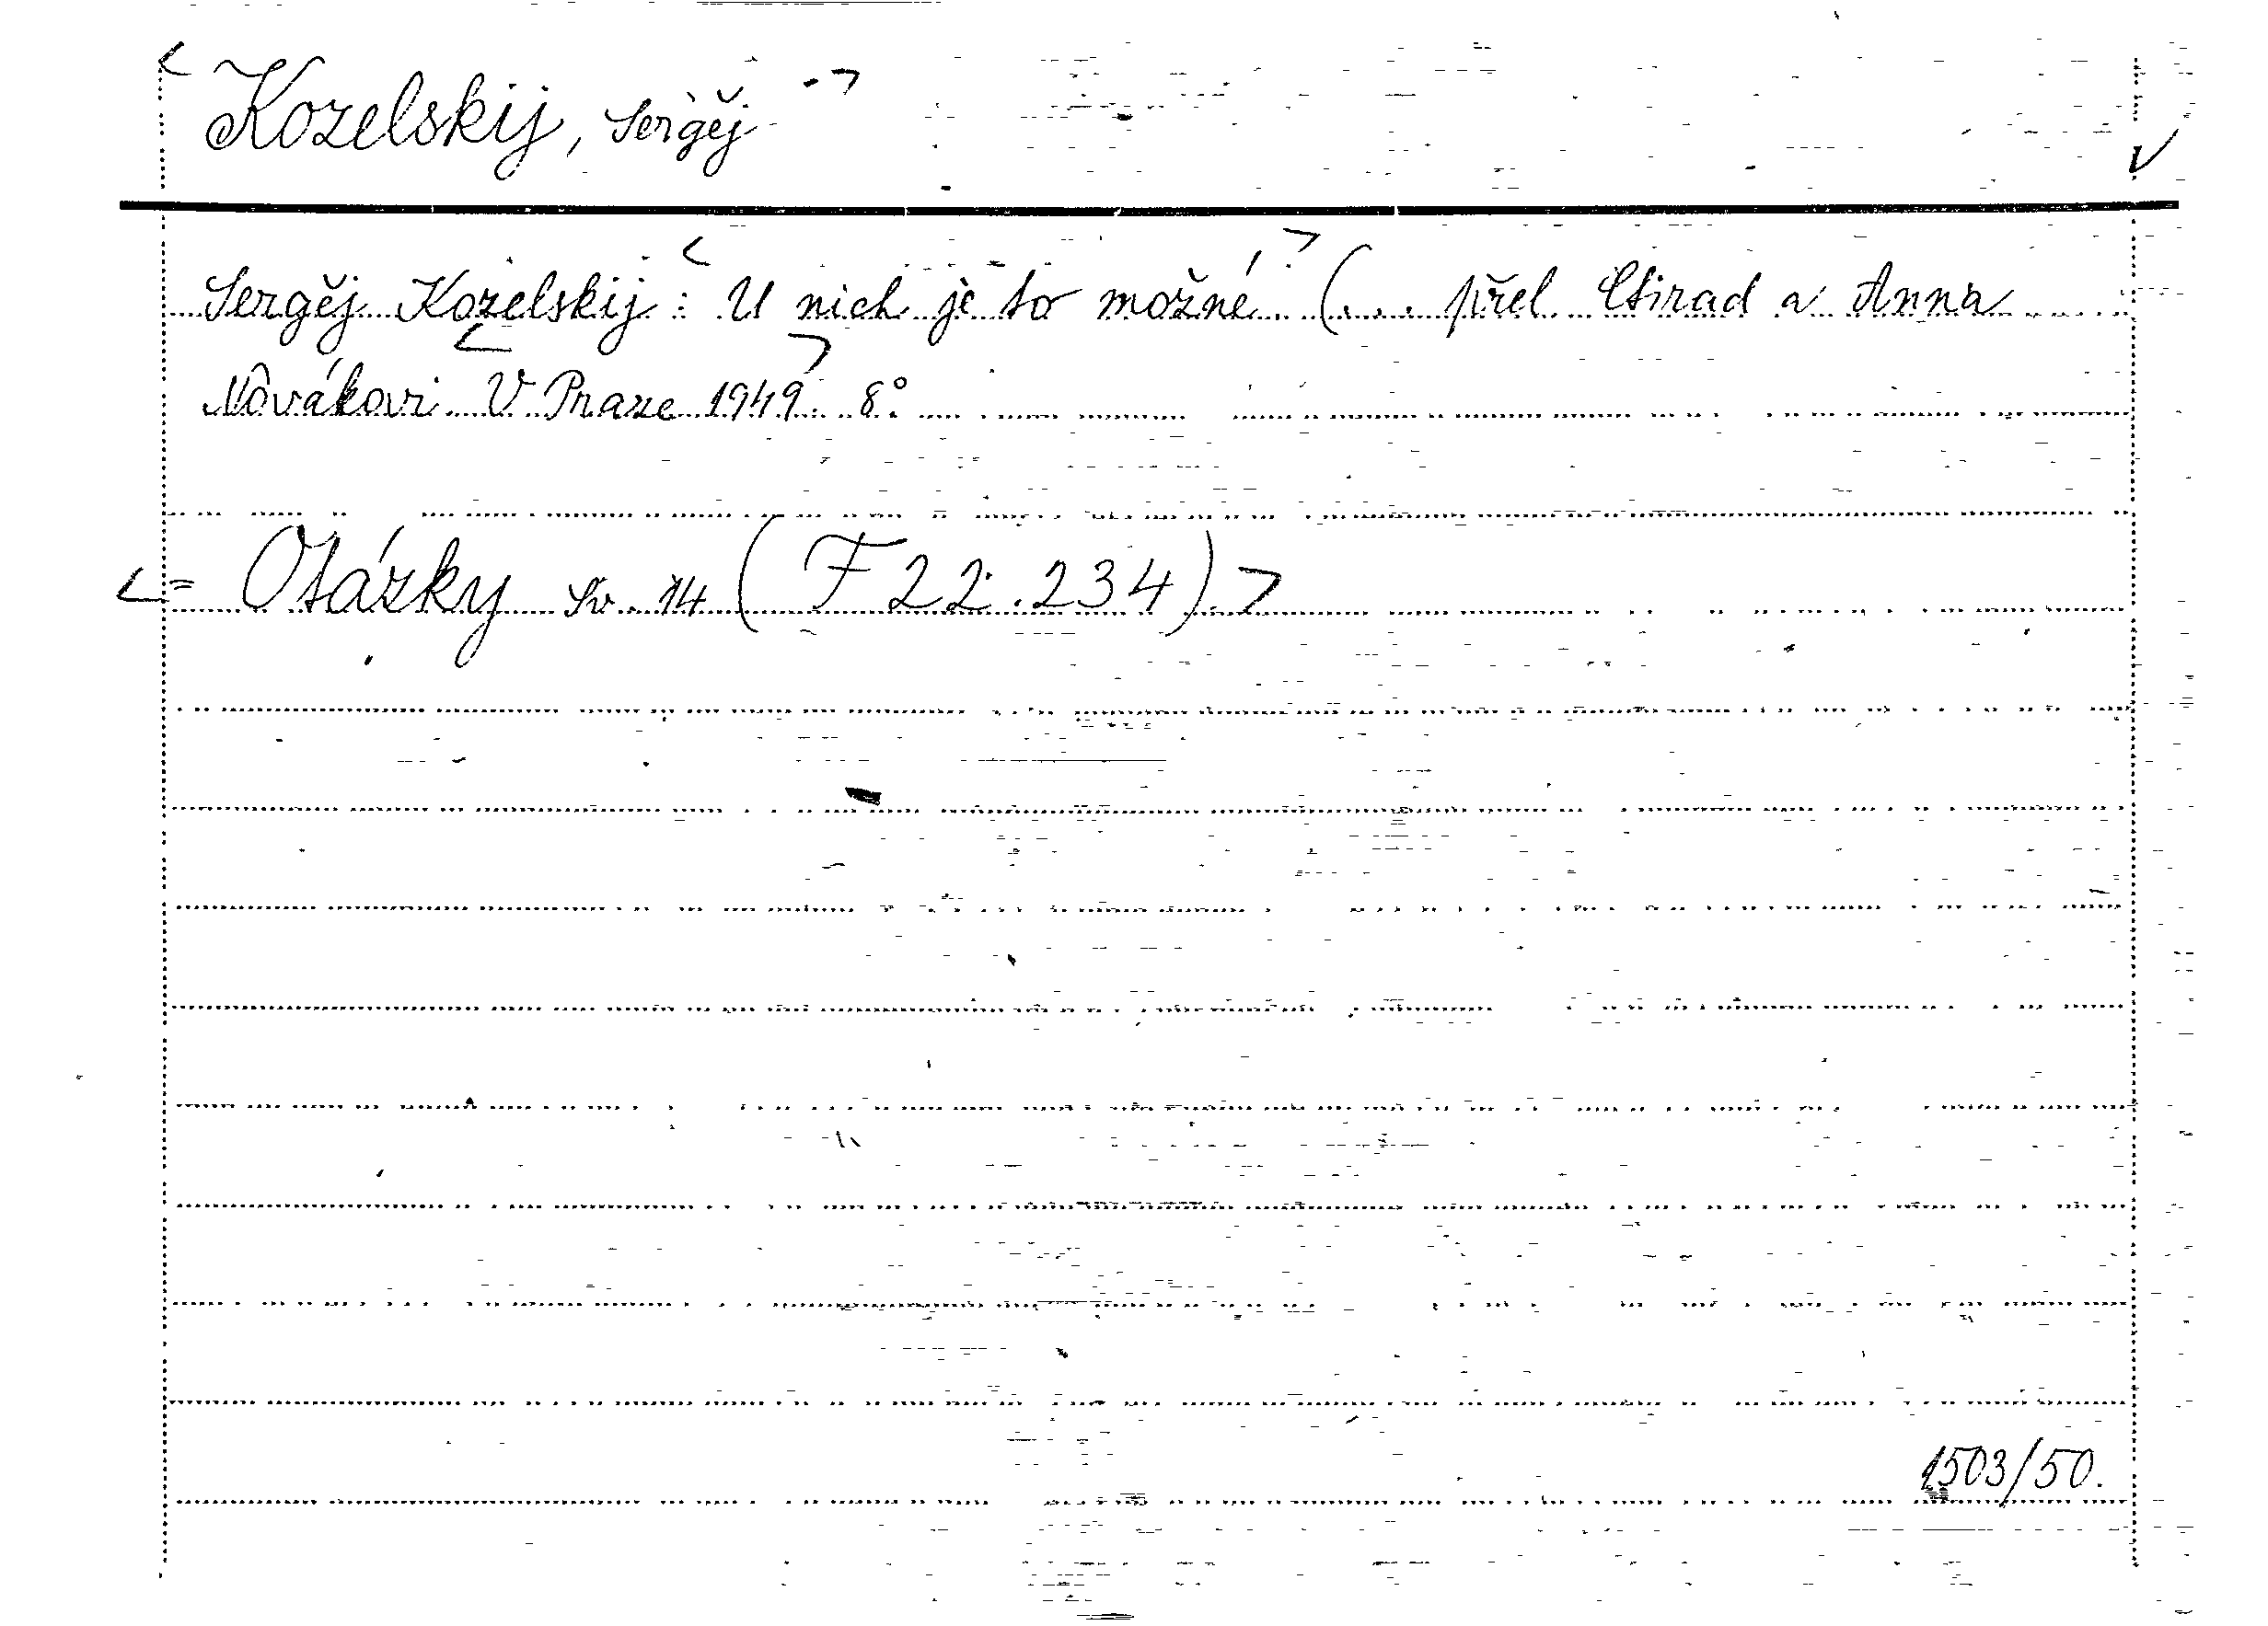 < Kozelskij, Sergěj >
Sergěj Kozelskij: < U nich je to možné. > (... přel. Ctirad a Anna
Novákovi < V Praze 1949. > 8°
<= Otázky sv. 14 ( F 22.234) >
1503/50.